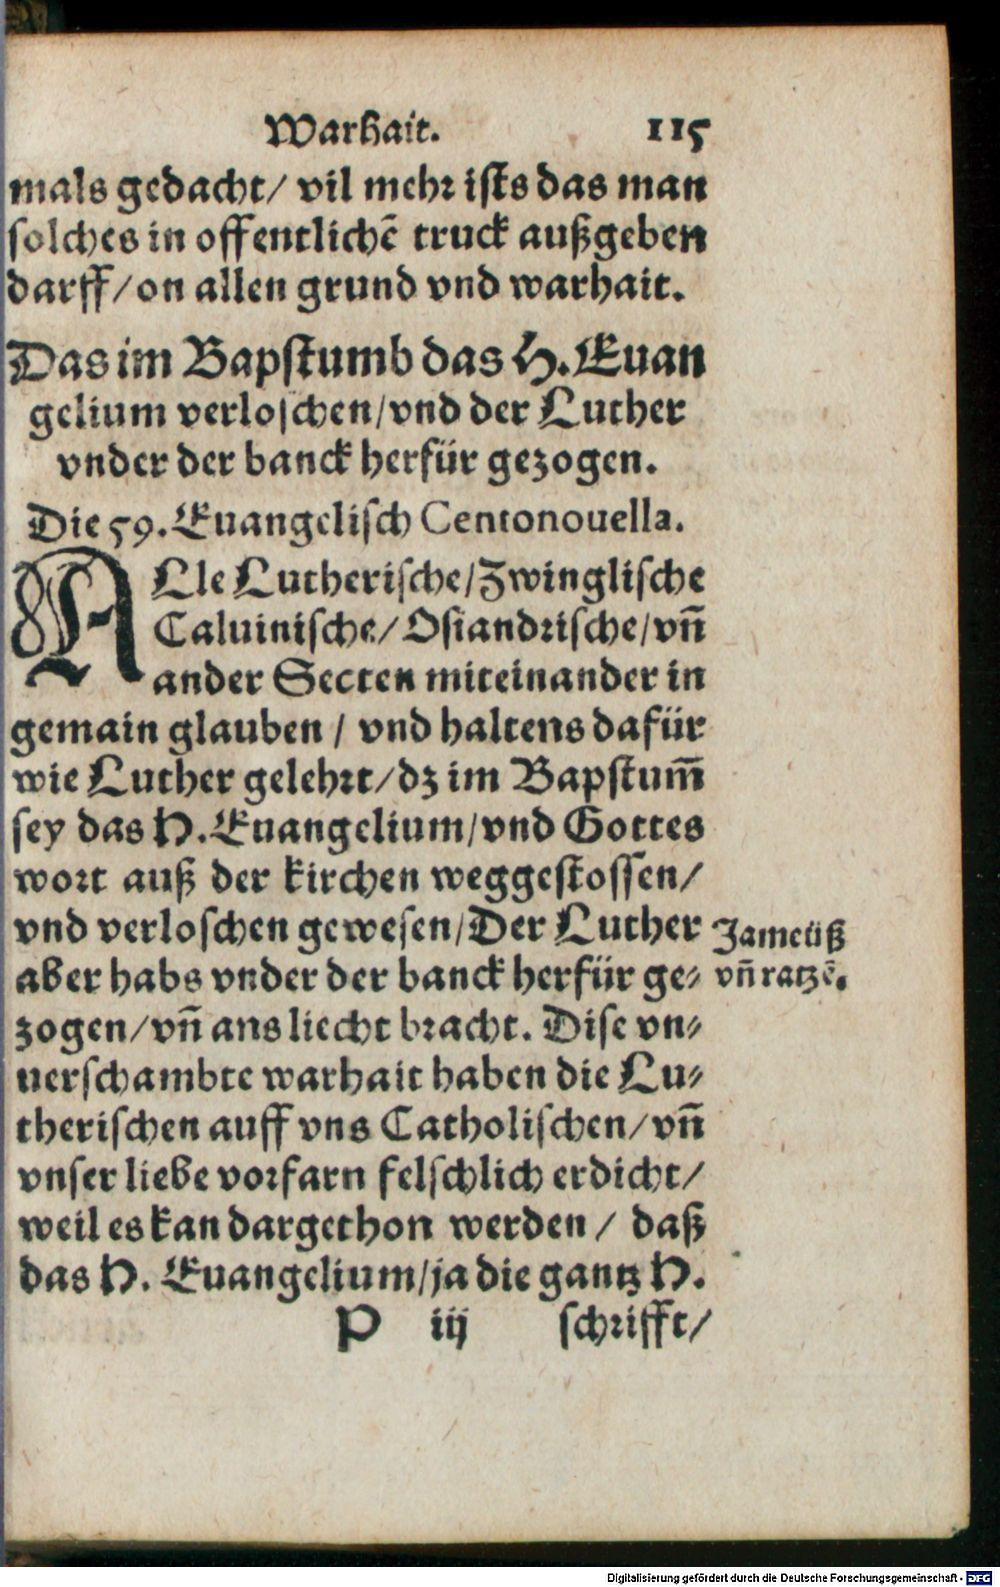 Warhait. 115
mals gedacht/ vil mehr ists das man
solches in offentlichẽ truck außgeben
darff/on allen grund vnd warhait.
Das im Bapstumb das H. Euan
gelium verloschen/vnd der Luther
vnder der banck herfür gezogen.
Die 59. Euangelisch Centonouella.
ALle Lutherische/Zwinglische
Caluinische/Osiandrische/vñ
ander Secten miteinander in
gemain glauben / vnd haltens dafür
wie Luther gelehrt/dz im Bapstum̃
sey das H. Euangelium/vnd Gottes
wort auß der kirchen weggestossen/
vnd verloschen gewesen/Der Luther
aber habs vnder der banck herfür ge-
zogen/vñ ans liecht bracht. Dise vn-
uerschambte warhait haben die Lu-
therischen auff vns Catholischen/vñ
vnser liebe vorfarn felschlich erdicht/
weil es kan dargethon werden / daß
das H. Euangelium/ja die gantz H.
Ja meüß
vñ ratzẽ.
P iij schrifft/
Digitalisierung gefördert durch die Deutsche Forschungsgemeinschaft - DFG